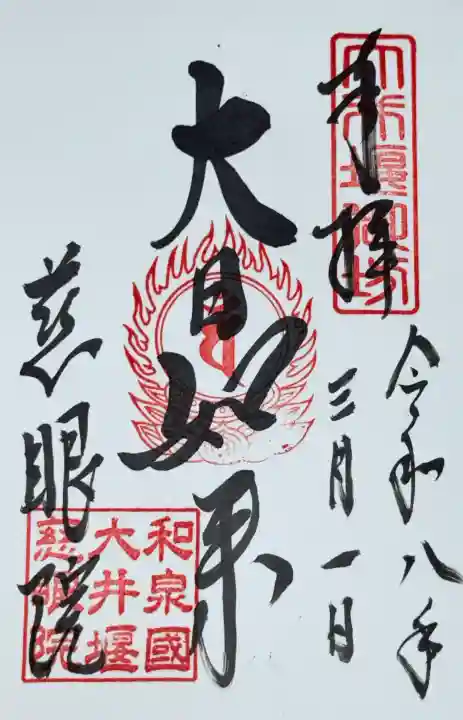 令和八年
三月一日
奉拝
大井堰御坊
大日如来
慈眼院
和泉國
大井堰
慈眼院